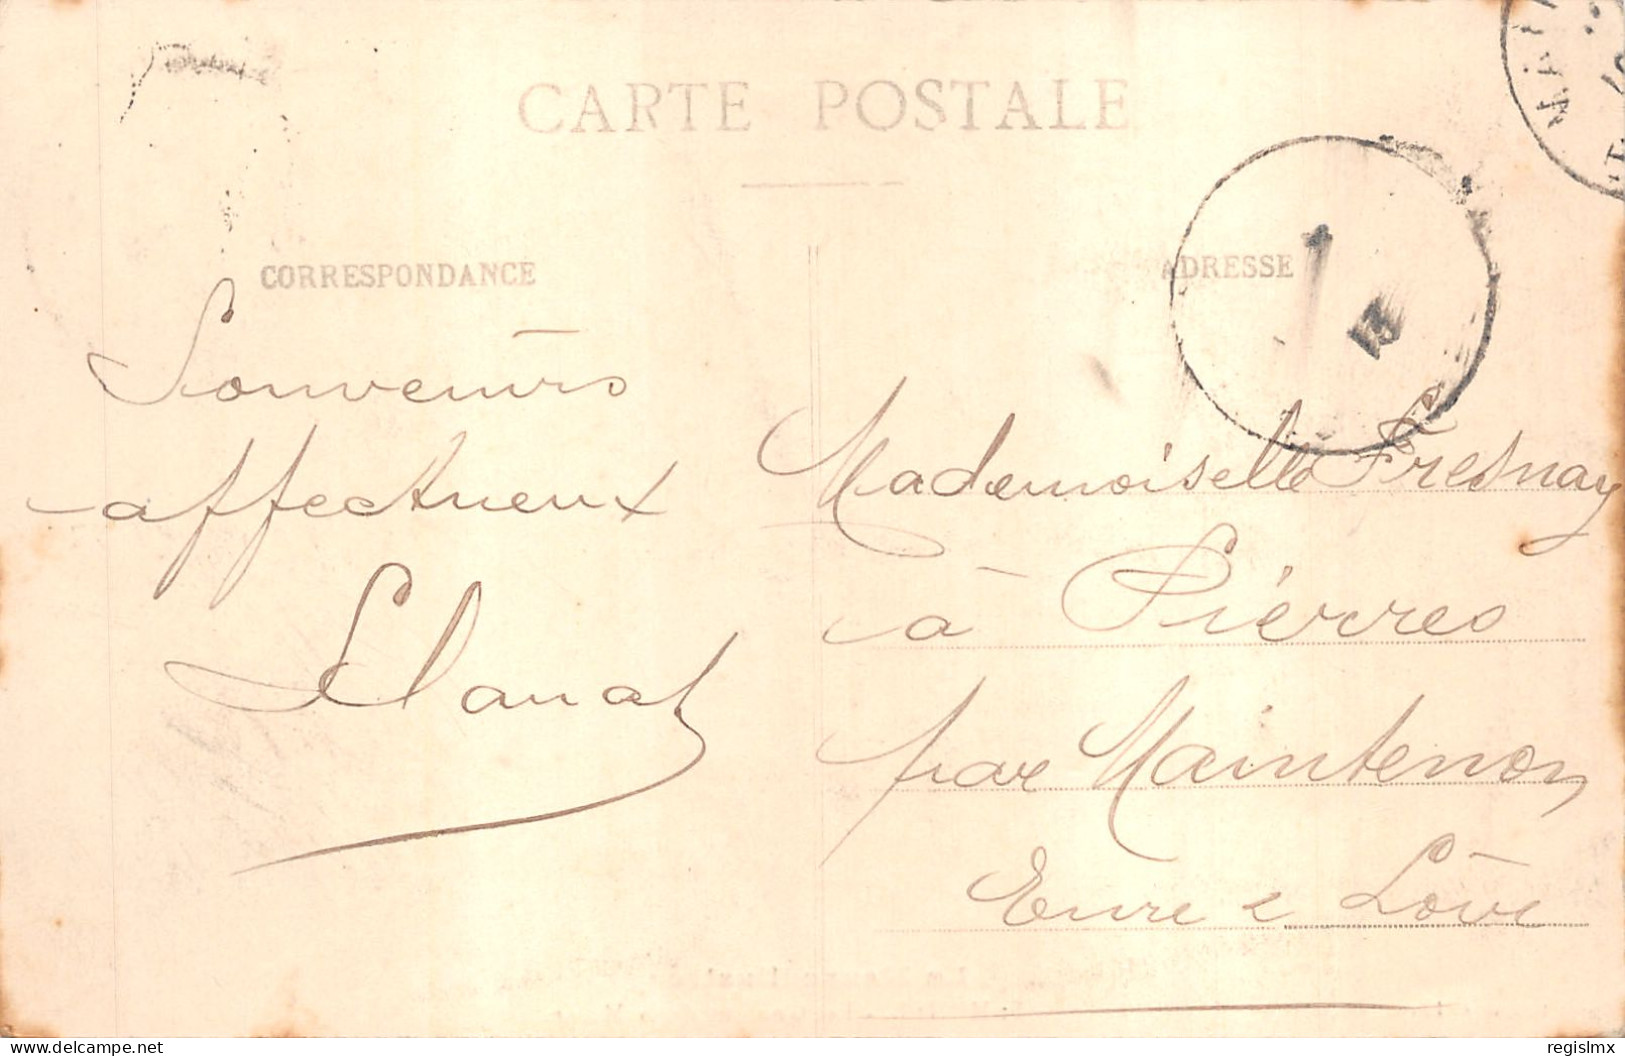 CARTE POSTALE
CORRESPONDANCE
ADRESSE
1
13
Souvenirs
affectueux
Mademoiselle Fresnay
à Piérres
par Maintenon
Eure e Loir
delcampe.net
regislmx